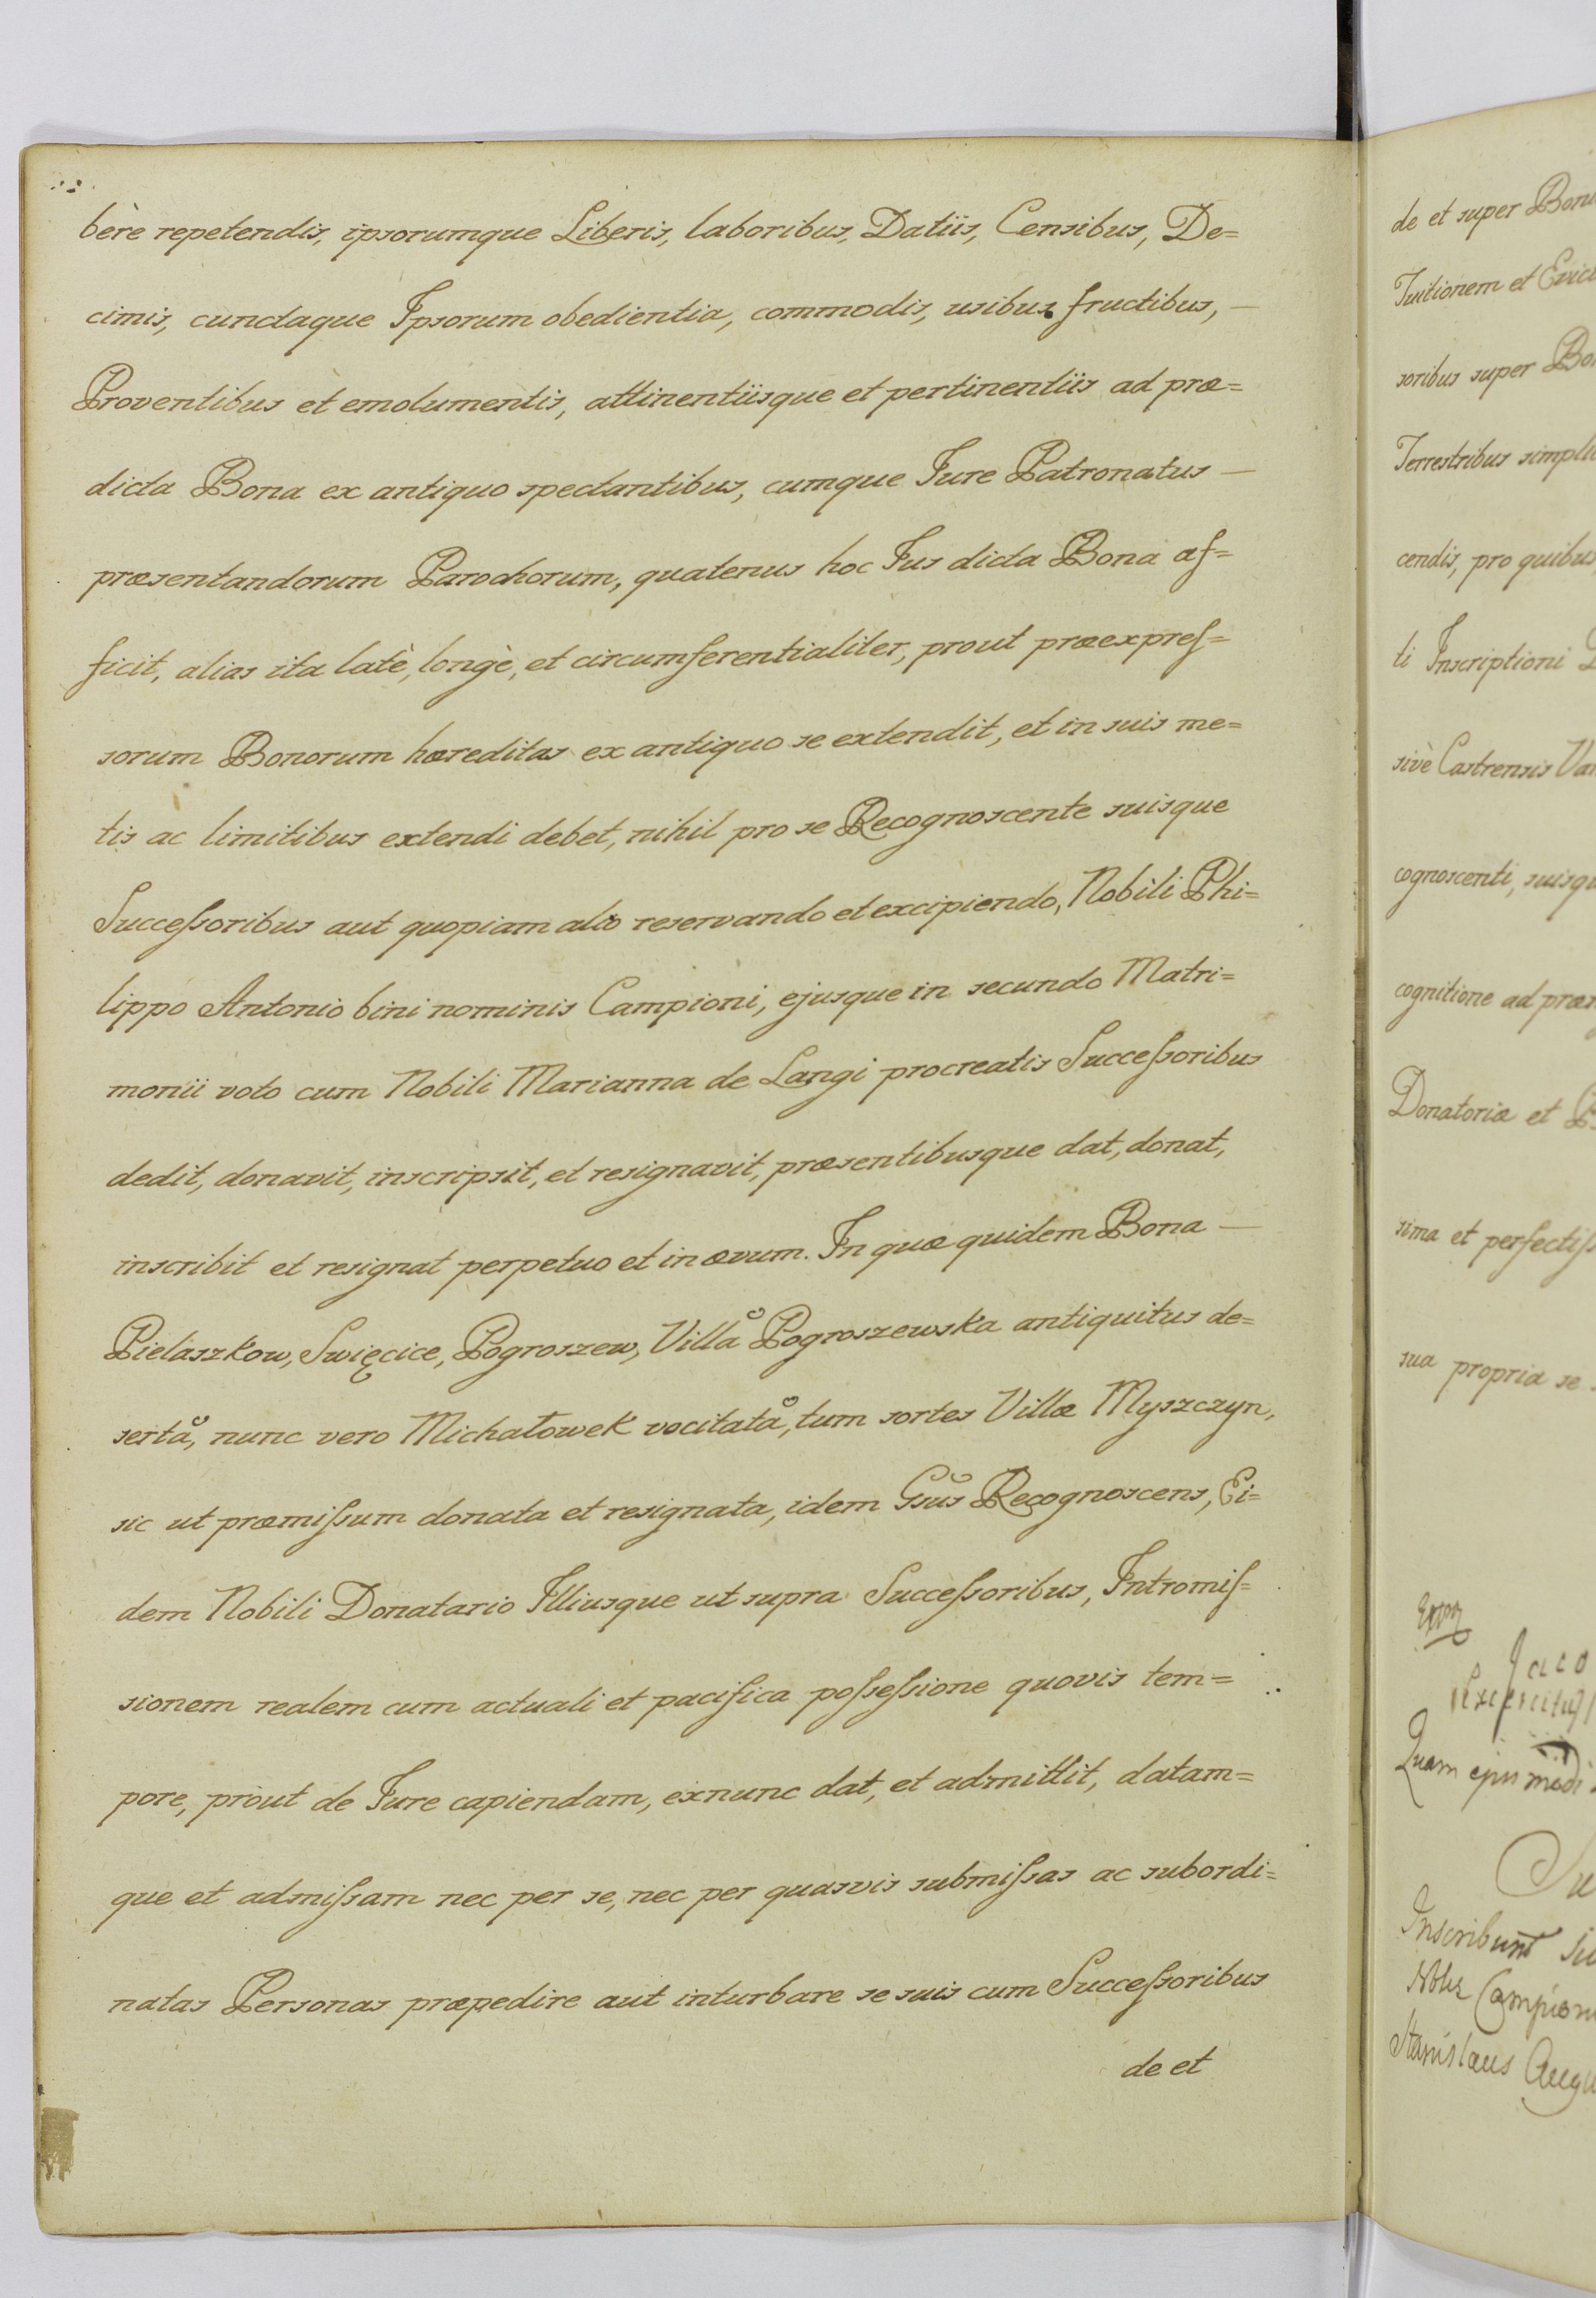 bère repetendis, ipsorumque Liberis, laboribus, Datiis, Censibus, De=
cimis, cunctaque Ipsorum obedientia, commodis, usibus fructibus, —
Proventibus et emolumentis, attinentiisque et pertinentiis ad præ=
dicta Bona ex antiquo spectantibus, cumque Jure Patronatus —
præsentandorum Parochorum, quatenus hoc Jus dicta Bona af=
ficit, alias ita latè, longè, et circumferentialiter, prout præexpreſ=
sorum Bonorum hæreditas ex antiquo se extendit, et in suis me=
tis ac limitibus extendi debet, nihil pro se Recognoscente suisque
Succeſsoribus aut quopiam alio reservando et excipiendo, Nobili Phi=
lippo Antonio bini nominis Campioni, ejusque in secundo Matri=
monii voto cum Nobili Marianna de Langi procreatis Succeſsoribus
dedit, donavit, inscripsit, et resignavit, præsentibusque dat, donat,
inscribit et resignat perpetuo et in ævum. In quæ quidem Bona —
Pielaszkow, Swięcice, Pogroszew, Villå Pogroszewska antiquitus de=
sertå, nunc vero Michałowek vocitatå, tum sortes Villæ Myszczyn,
sic ut præmiſsum donata et resignata, idem Gsus Recognoscens, Ei=
dem Nobili Donatario Illiusque ut supra Succeſsoribus, Intromiſ=
sionem realem cum actuali et pacifica poſseſsione quovis tem=
pore, prout de Jure capiendam, exnunc dat, et admittit, datam=
que et admiſsam nec per se, nec per quasvis submiſsas ac subordi=
natas Personas præpedire aut inturbare se suis cum Succeſsoribus
de et
de et super
Tuitionem et
soribus super
Terrestribus
cendis, pro quibus
ti Inscriptioni
sivè Castrensis
cognoscenti,
cognitione ad
Donatoriæ et
sima et
sua propria se
Quam
Inscribunt
Stanislaus